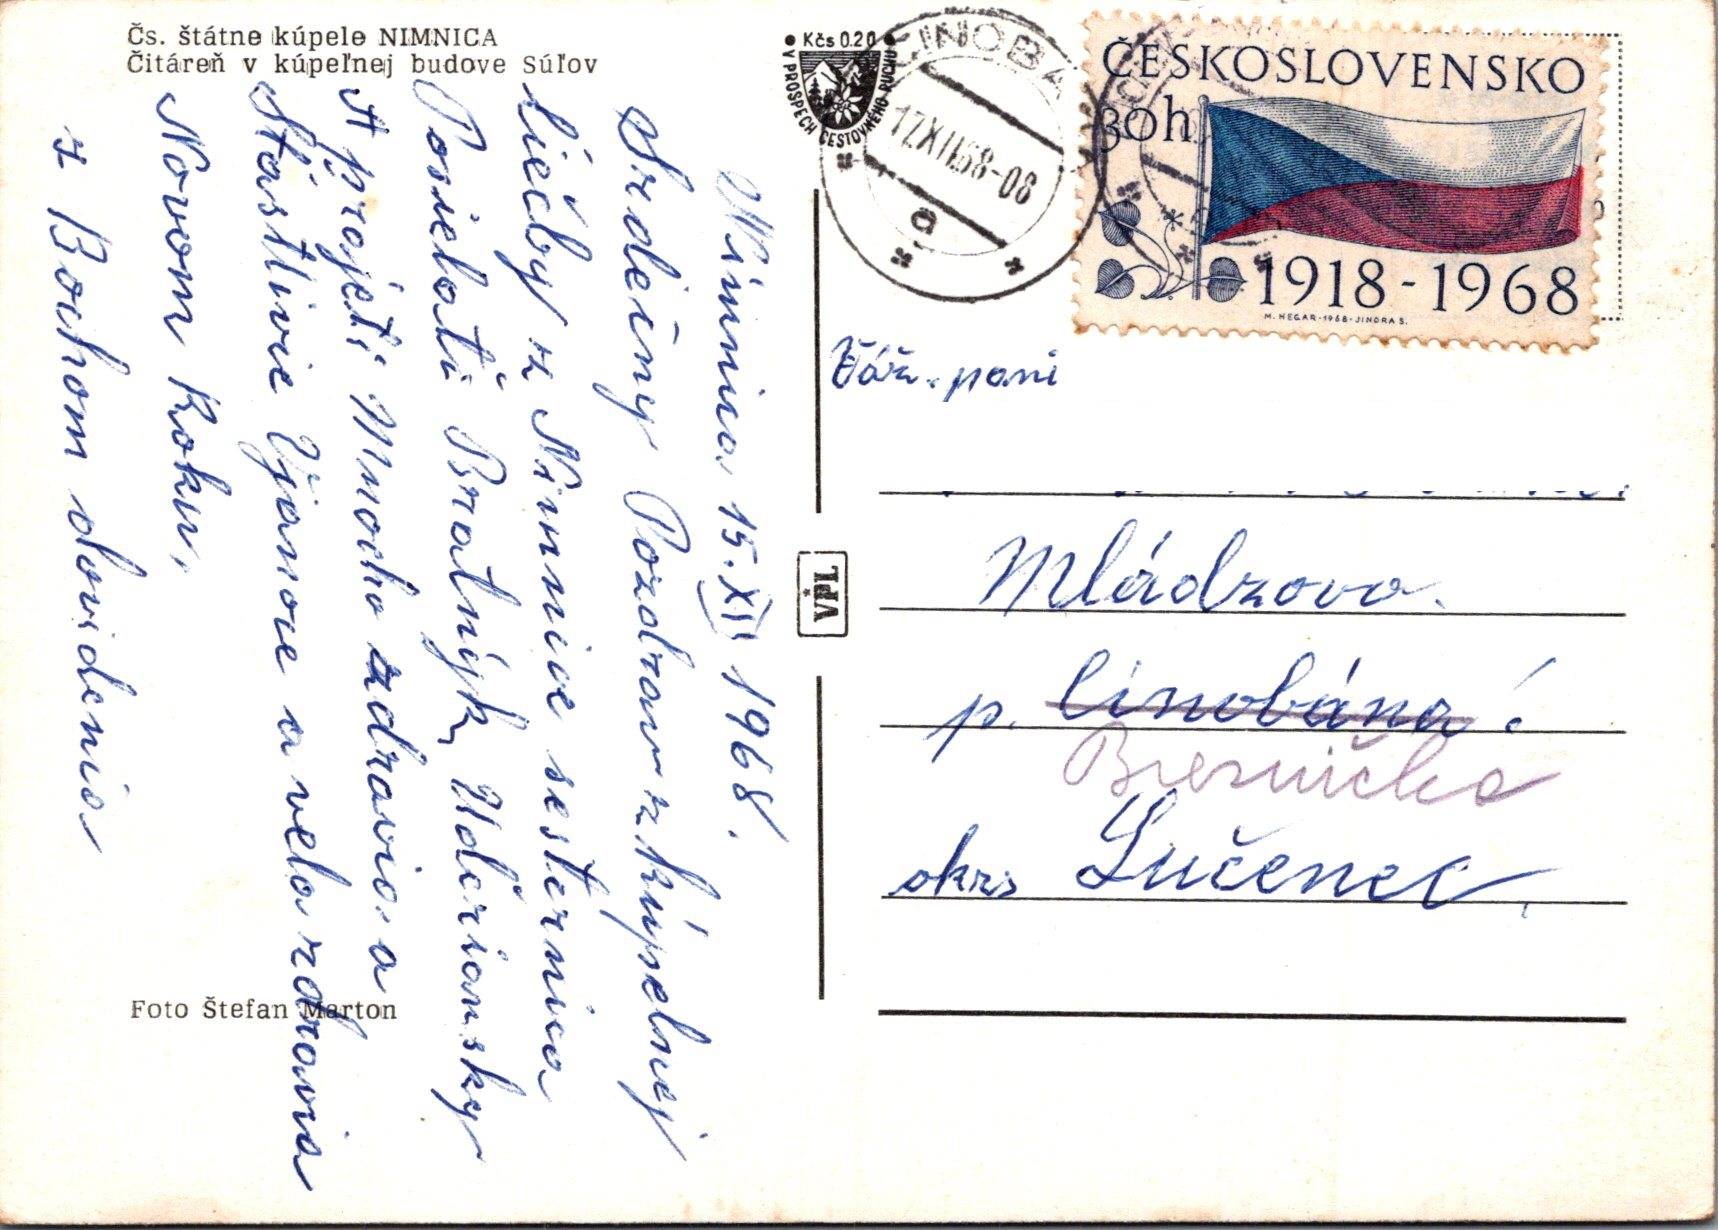 Čs. štátne kúpele NIMNICA
Čitáreň v kúpeľnej budove Súľov
Nimnica 15. XII 1968.
Srdečný Pozdrav z kúpelnej
liečby z Nimnice sesternica
Posielati Bratnýk
A prajeti Mnoho zdravia a
Štastlivie Vjanoce a vela zdravia
Novom Roku.
z Bochom dovidenia
Foto Štefan Marton
● Kčs 0.20 ●
V PROSPECH CESTOVNÉHO RUCHU
CINOBAŇ
17.XII.68-08
a
ČESKOSLOVENSKO
30h
1918-1968
M. HEGAR-1968-JINDRA S.
VPL
Váž. pani
Mládzova.
p. Cinobána
Breznička
okrs Lučenec